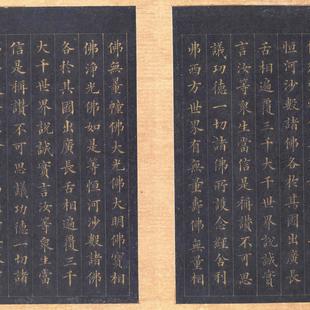 恒河沙數諸佛各於其國出廣長
舌相遍覆三千大千世界說誠實
言汝等衆生當信是稱讚不可思
議功德一切諸佛所護念經舍利
弗西方世界有無量壽佛無量相
佛無量幢佛大光佛大明佛寶相
佛淨光佛如是等恒河沙數諸佛
各於其國出廣長舌相遍覆三千
大千世界說誠實言汝等衆生當
信是稱讚不可思議功德一切諸